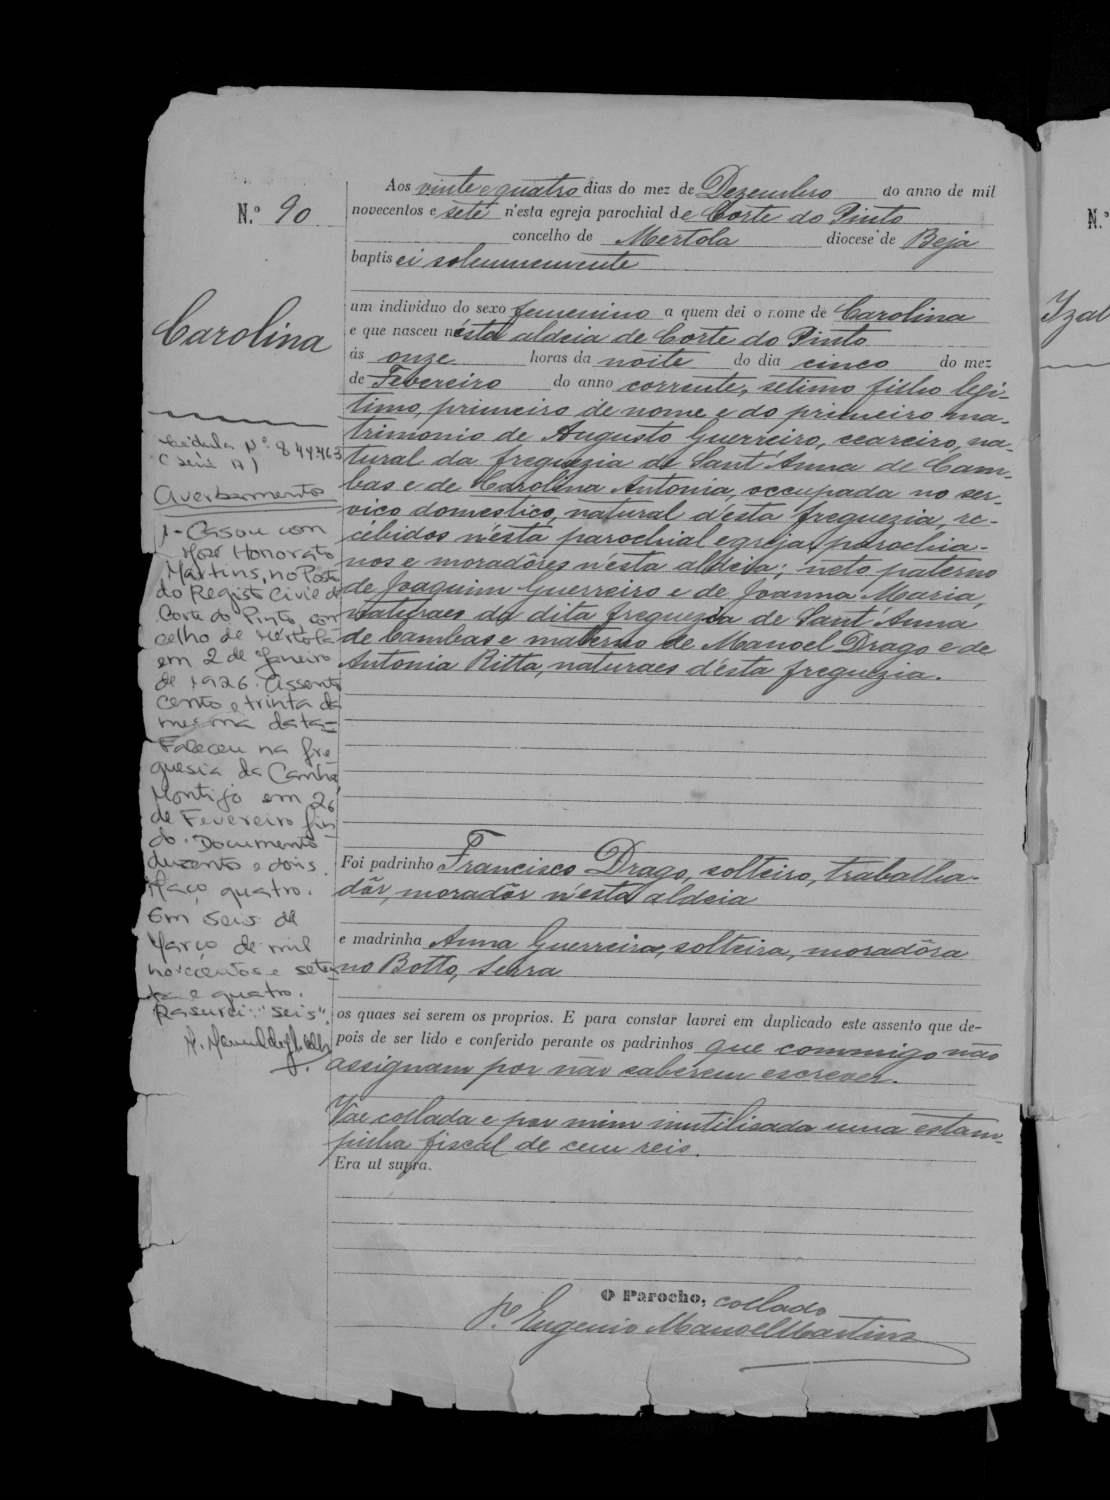 N.º 90
Carolina
Cédula Nº 844463
(Série A)
Averbamento
1- Casou com
José Honorato
Martins, no Posto
do Registo Civil de
Corte do Pinto, con
celho de Mértola
em 2 de Janeiro
de 1926. Assento
cento e trinta da
mesma data=
Faleceu na fre-
guesia da Canha,
Montijo em 26
de Fevereiro fin-
do. Documento
duzento e dois.
Maço quatro.
Em seis de
Março de mil
novecentos e seten
ta e quatro.
Rasurei: "seis".
Aos vinte e quatro dias do mez de Dezembro do anno de mil
novecentos e sete n'esta egreja parochial de Corte do Pinto
concelho de Mertola diocese de Beja
baptisei solemnemente
um individuo do sexo femenino a quem dei o nome de Carolina
e que nasceu n'ésta aldeia de Corte do Pinto
ás onze horas da noite do dia cinco do mez
de Fevereiro do anno corrente, setimo filho legi-
timo, primeiro de nome e do primeiro ma-
trimonio de Augusto Guerreiro, ceareiro, na-
tural da freguezia de Sant'Anna de Cam-
bas e de Carolina Antonia, occupada no ser-
viço domestico, natural d'esta freguezia, re-
cébidos n'ésta parochial egreja, parochia-
nos e moradôres n'ésta aldeia; neto paterno
de Joaquim Guerreiro e de Joanna Maria,
naturaes da dita freguezia de Sant'Anna
de Cambas e materno de Manoel Drago e de
Antonia Ritta, naturaes d'ésta freguezia.
Foi padrinho Francisco Drago, solteiro, trabalha-
dôr, moradôr n'ésta aldeia
e madrinha Anna Guerreira, solteira, moradôra
no Botto, serra
os quaes sei serem os proprios. E para constar lavrei em duplicado este assento que de-
pois de ser lido e conferido perante os padrinhos que commigo não
assignam por não saberem escrever.
Vae collada e por mim inutilisada uma estam-
pilha fiscal de cem reis.
Era ut supra.
O Parocho, collado
P.e Eugenio Manoel Martins
N.º
Izab